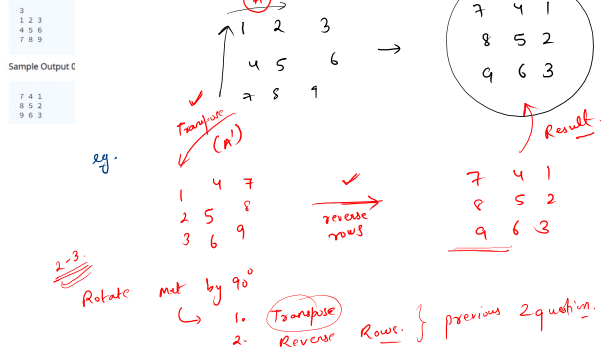 3
1 2 3
4 5 6
7 8 9
Sample Output 0
7 4 1
8 5 2
9 6 3
A
1 2 3
4 5 6
7 8 9
7 4 1
8 5 2
9 6 3
Transpose
(A')
Result.
eg.
1 4 7
2 5 8
3 6 9
reverse
rows
7 4 1
8 5 2
9 6 3
2-3.
Rotate Mat by 90°
1. Transpose
2. Reverse Rows. } previous 2 question.